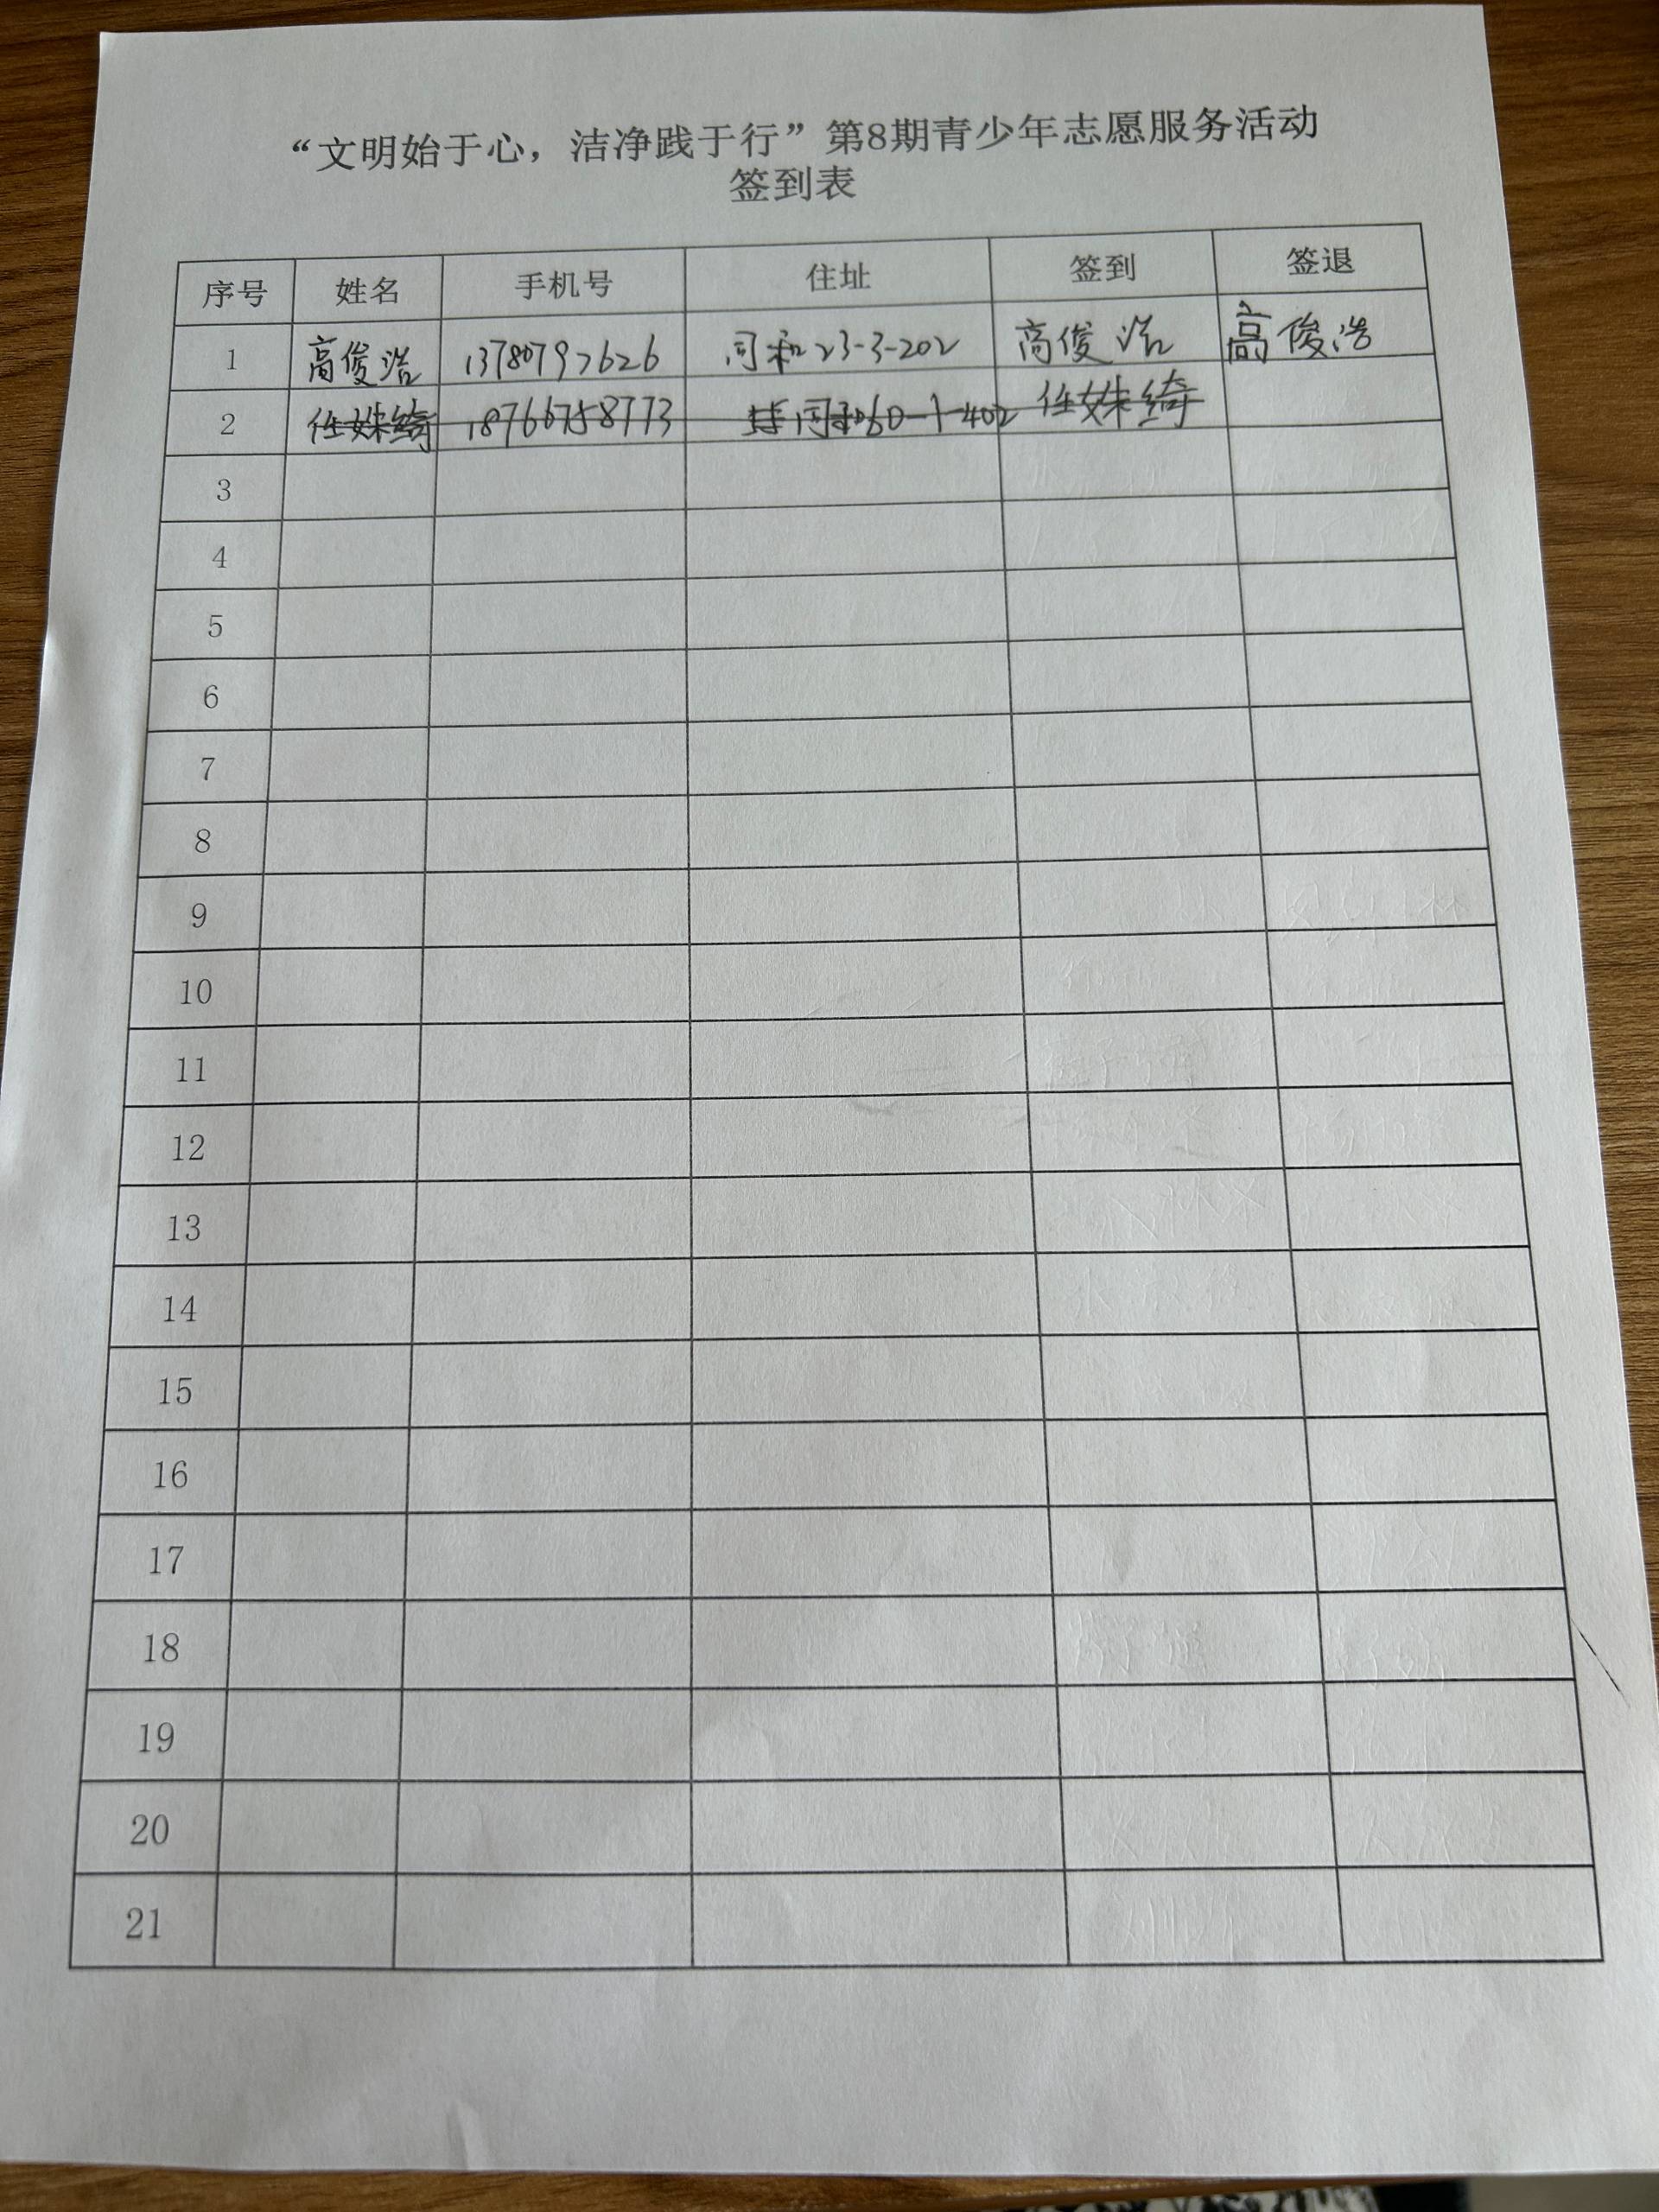 “文明始于心，洁净践于行”第8期青少年志愿服务活动
签到表
序号 姓名 手机号 住址 签到 签退
1 高俊浩 13780797626 同和23-3-202 高俊浩 高俊浩
2 任姝绮 18766758773 同和60-1-402 任姝绮
3
4
5
6
7
8
9
10
11
12
13
14
15
16
17
18
19
20
21